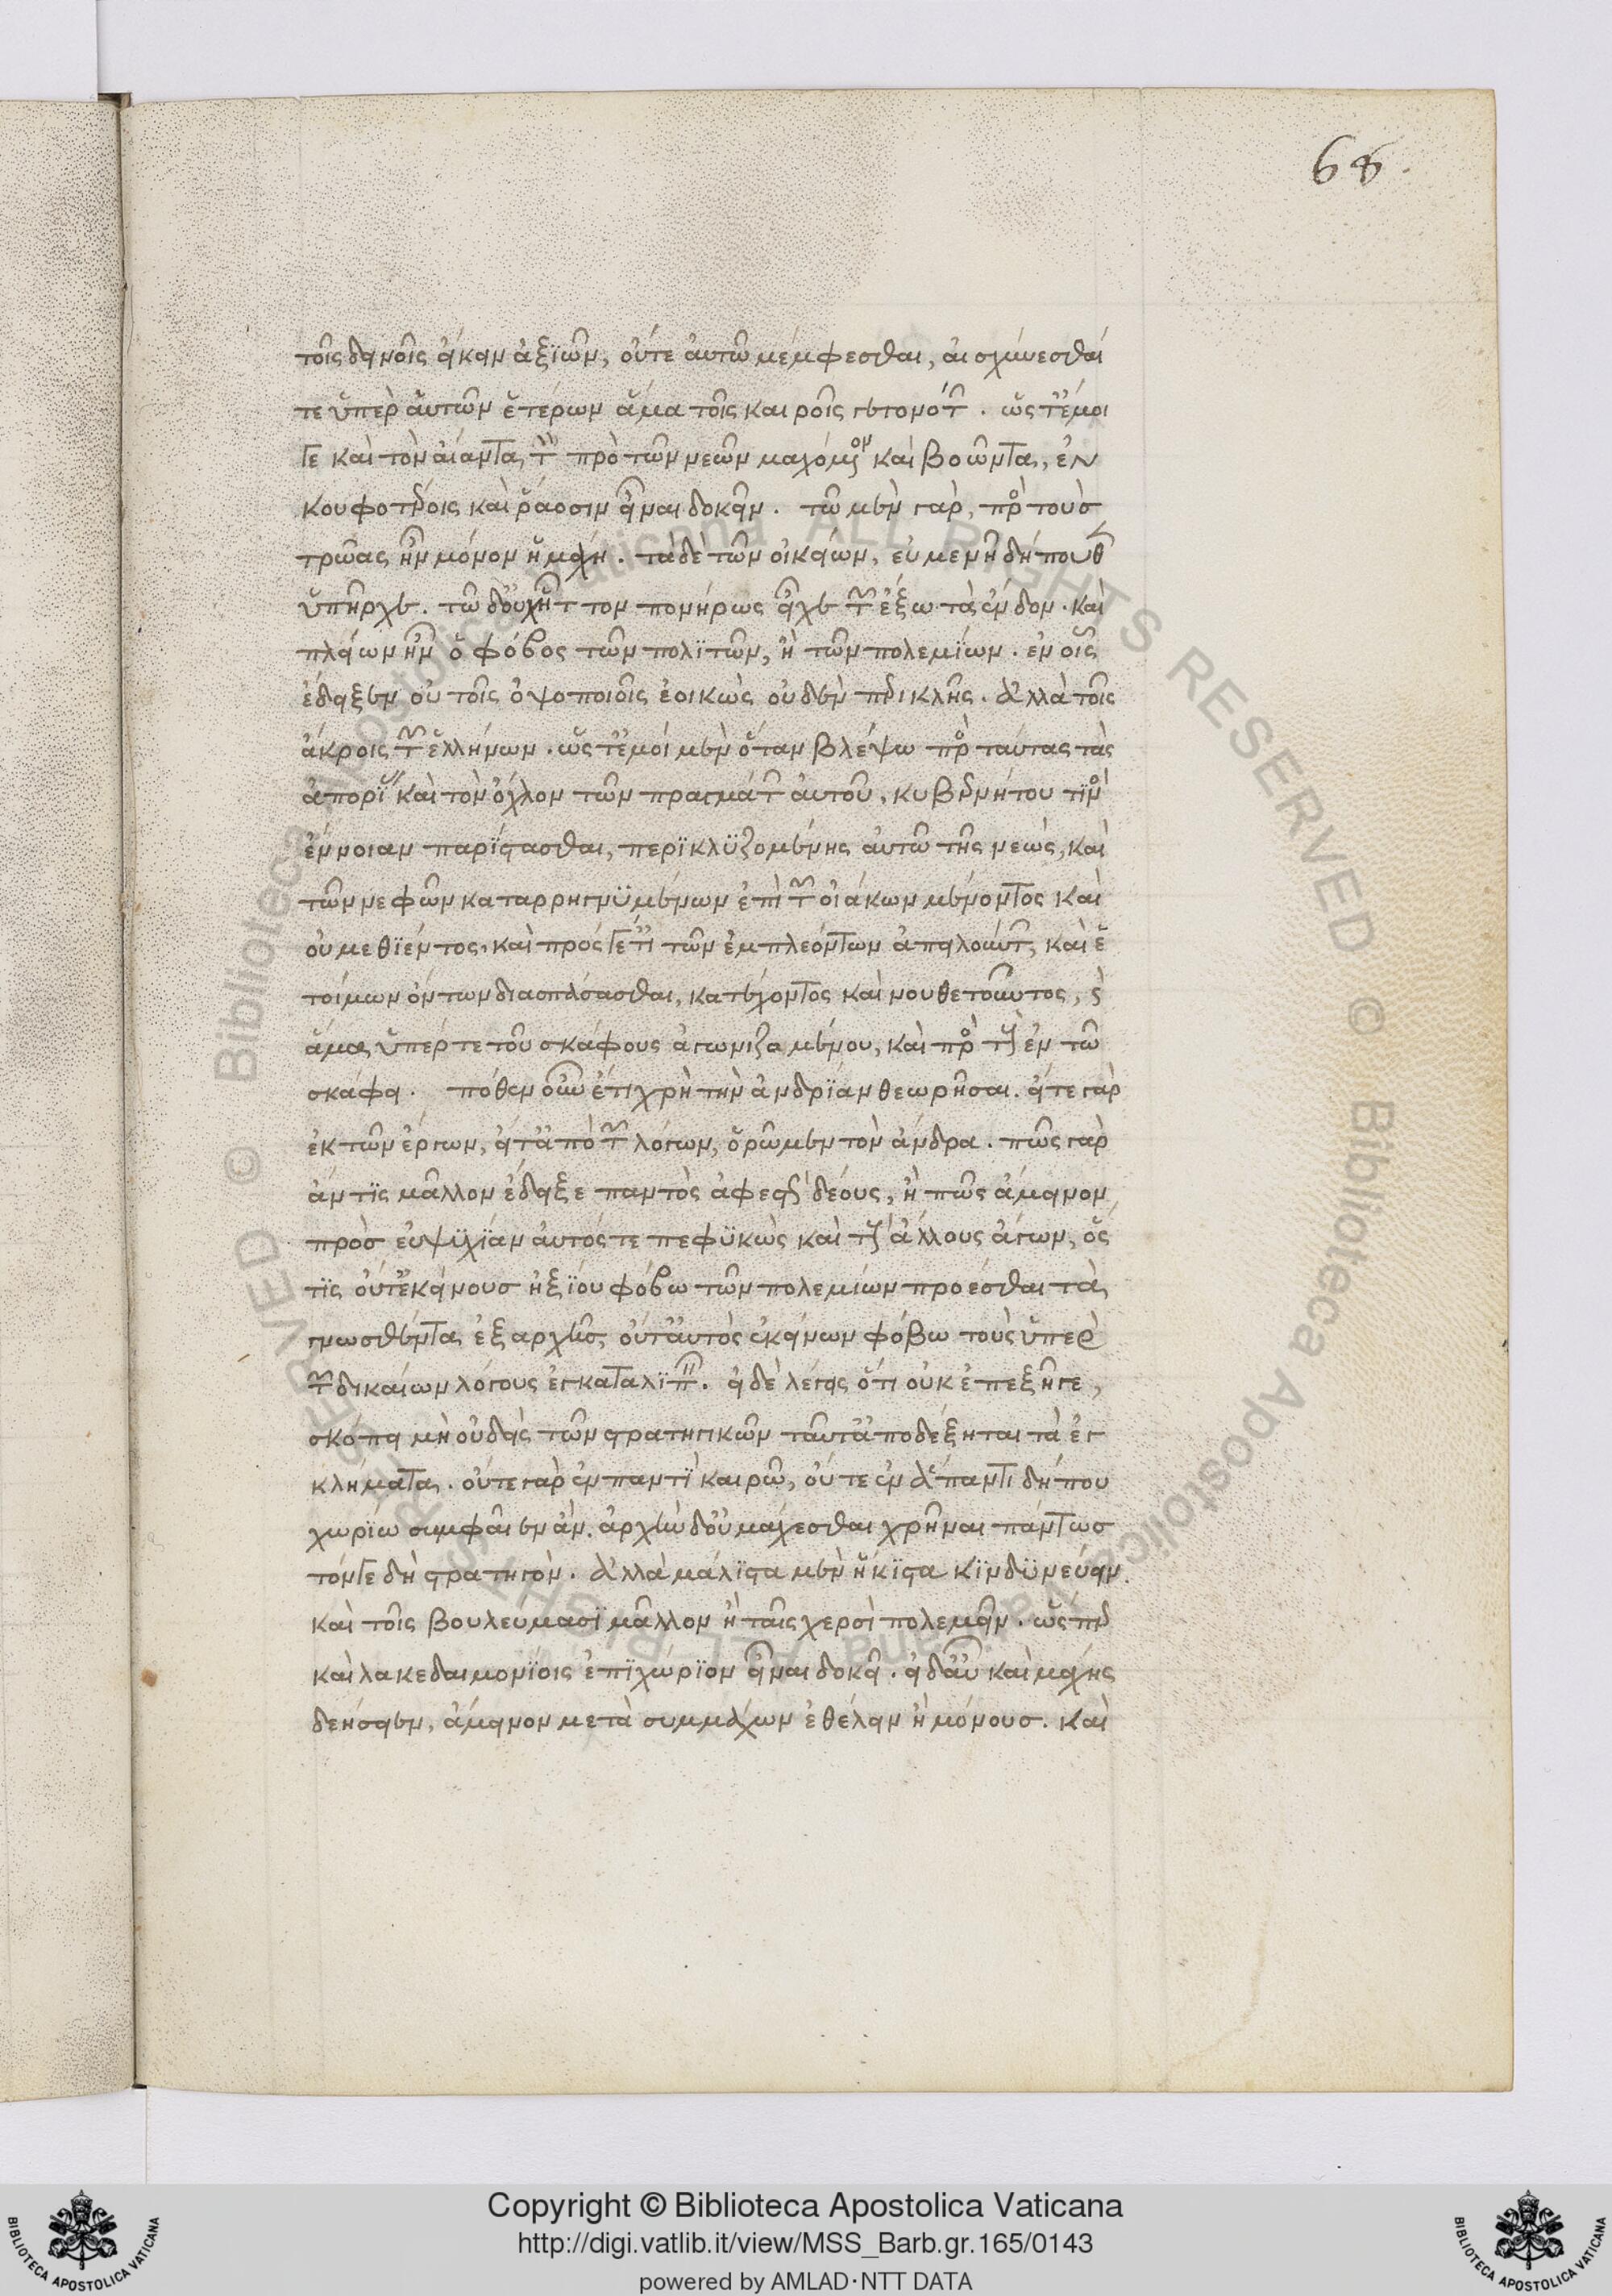 68.
τοῖς δεινοῖς εἴκειν ἀξιῶν, οὔτε αὐτῶ μέμφεσθαι, αἰσχύνεσθαί
τε ὑπὲρ αὐτῶν ἑτέρων ἅμα τοῖς καιροῖς γεγονότων. ὥστ' ἔμοι
γε καὶ τὸν αἴαντα τὸν πρὸ τῶν νεῶν μαχόμενον καὶ βοῶντα, ἐν
κουφοτέροις καὶ ῥάοσιν εἶναι δοκεῖν. τῶ μὲν γὰρ, πρὸς τοὺς
τρῶας ἦν μόνον ἡ μάχη. τὰ δὲ τῶν οἰκείων, εὐμενῆ δήπουθεν
ὑπῆρχε. τῶ δ' οὐχ ἧττον πονήρως εἶχε τῶν ἔξω τὰ ἔνδον. καὶ
πλείων ἦν ὁ φόβος τῶν πολιτῶν, ἢ τῶν πολεμίων. ἐν οἷς
ἔδειξεν οὐ τοῖς ὀψοποιοῖς ἐοικὼς οὐδὲν περικλῆς. ἀλλὰ τοῖς
ἄκροις τῶν ἑλλήνων. ὥστ' ἐμοὶ μὲν ὅταν βλέψω πρὸς ταύτας τὰς
ἀπορίας καὶ τὸν ὄχλον τῶν πραγμάτων αὐτοῦ, κυβερνήτου τινὸς
ἔννοιαν παρίστασθαι, περικλυζομένης αὐτῶ τῆς νεώς, καὶ
τῶν νεφῶν καταρρηγνυμένων ἐπὶ τῶν οἰάκων μένοντος καὶ
οὐ μεθιέντος, καὶ πρός γ' ἔτι τῶν ἐμπλεόντων ἀπειλούντων, καὶ ἑ
τοίμων ὄντων διασπάσασθαι, κατέχοντος καὶ νουθετοῦντος, καὶ
ἅμα ὑπέρ τε τοῦ σκάφους ἀγωνιζομένου, καὶ πρὸς τοὺς ἐν τῶ
σκάφει. πόθεν οὖν ἔτι χρὴ τὴν ἀνδρίαν θεωρῆσαι. εἴτε γὰρ
ἐκ τῶν ἔργων, εἴτ' ἀπὸ τῶν λόγων, ὁρῶμεν τὸν ἄνδρα. πῶς γὰρ
ἄν τις μᾶλλον ἔδειξε παντὸς ἀφεστὼς δέους, ἢ πῶς ἄμεινον
πρὸς εὐψυχίαν αὐτός τε πεφυκὼς καὶ τοὺς ἄλλους ἄγων, ὅς
τις οὔτ' ἐκείνους ἠξίου φόβω τῶν πολεμίων προέσθαι τὰ
γνωσθέντα ἐξαρχῆς, οὔτ' αὐτὸς ἐκείνων φόβω τοὺς ὑπὲρ
τῶν δικαίων λόγους ἐγκαταλιπεῖν. εἰ δὲ λέγεις ὅτι οὐκ ἐπεξῆγε,
σκόπει μὴ οὐδεὶς τῶν στρατηγικῶν ταῦτ' ἀποδέξηται τὰ ἐγ
κλήματα. οὔτε γὰρ ἐν παντὶ καιρῶ, οὔτε ἐν ἅπαντι δήπου
χωρίω συμφαῖεν ἄν. ἀρχὴν δ' οὐ μάχεσθαι χρῆναι πάντως
τόν γε δὴ στρατηγόν. ἀλλὰ μάλιστα μὲν ἥκιστα κινδυνεύειν.
καὶ τοῖς βουλεύμασι μᾶλλον ἢ ταῖς χερσὶ πολεμεῖν. ὥσπερ
καὶ λακεδαιμονίοις ἐπιχώριον εἶναι δοκεῖ. εἰ δ' αὖ καὶ μάχης
δεήσειεν, ἄμεινον μετὰ συμμάχων ἐθέλειν ἢ μόνους. καὶ
Copyright © Biblioteca Apostolica Vaticana
http://digi.vatlib.it/view/MSS_Barb.gr.165/0143
powered by AMLAD·NTT DATA